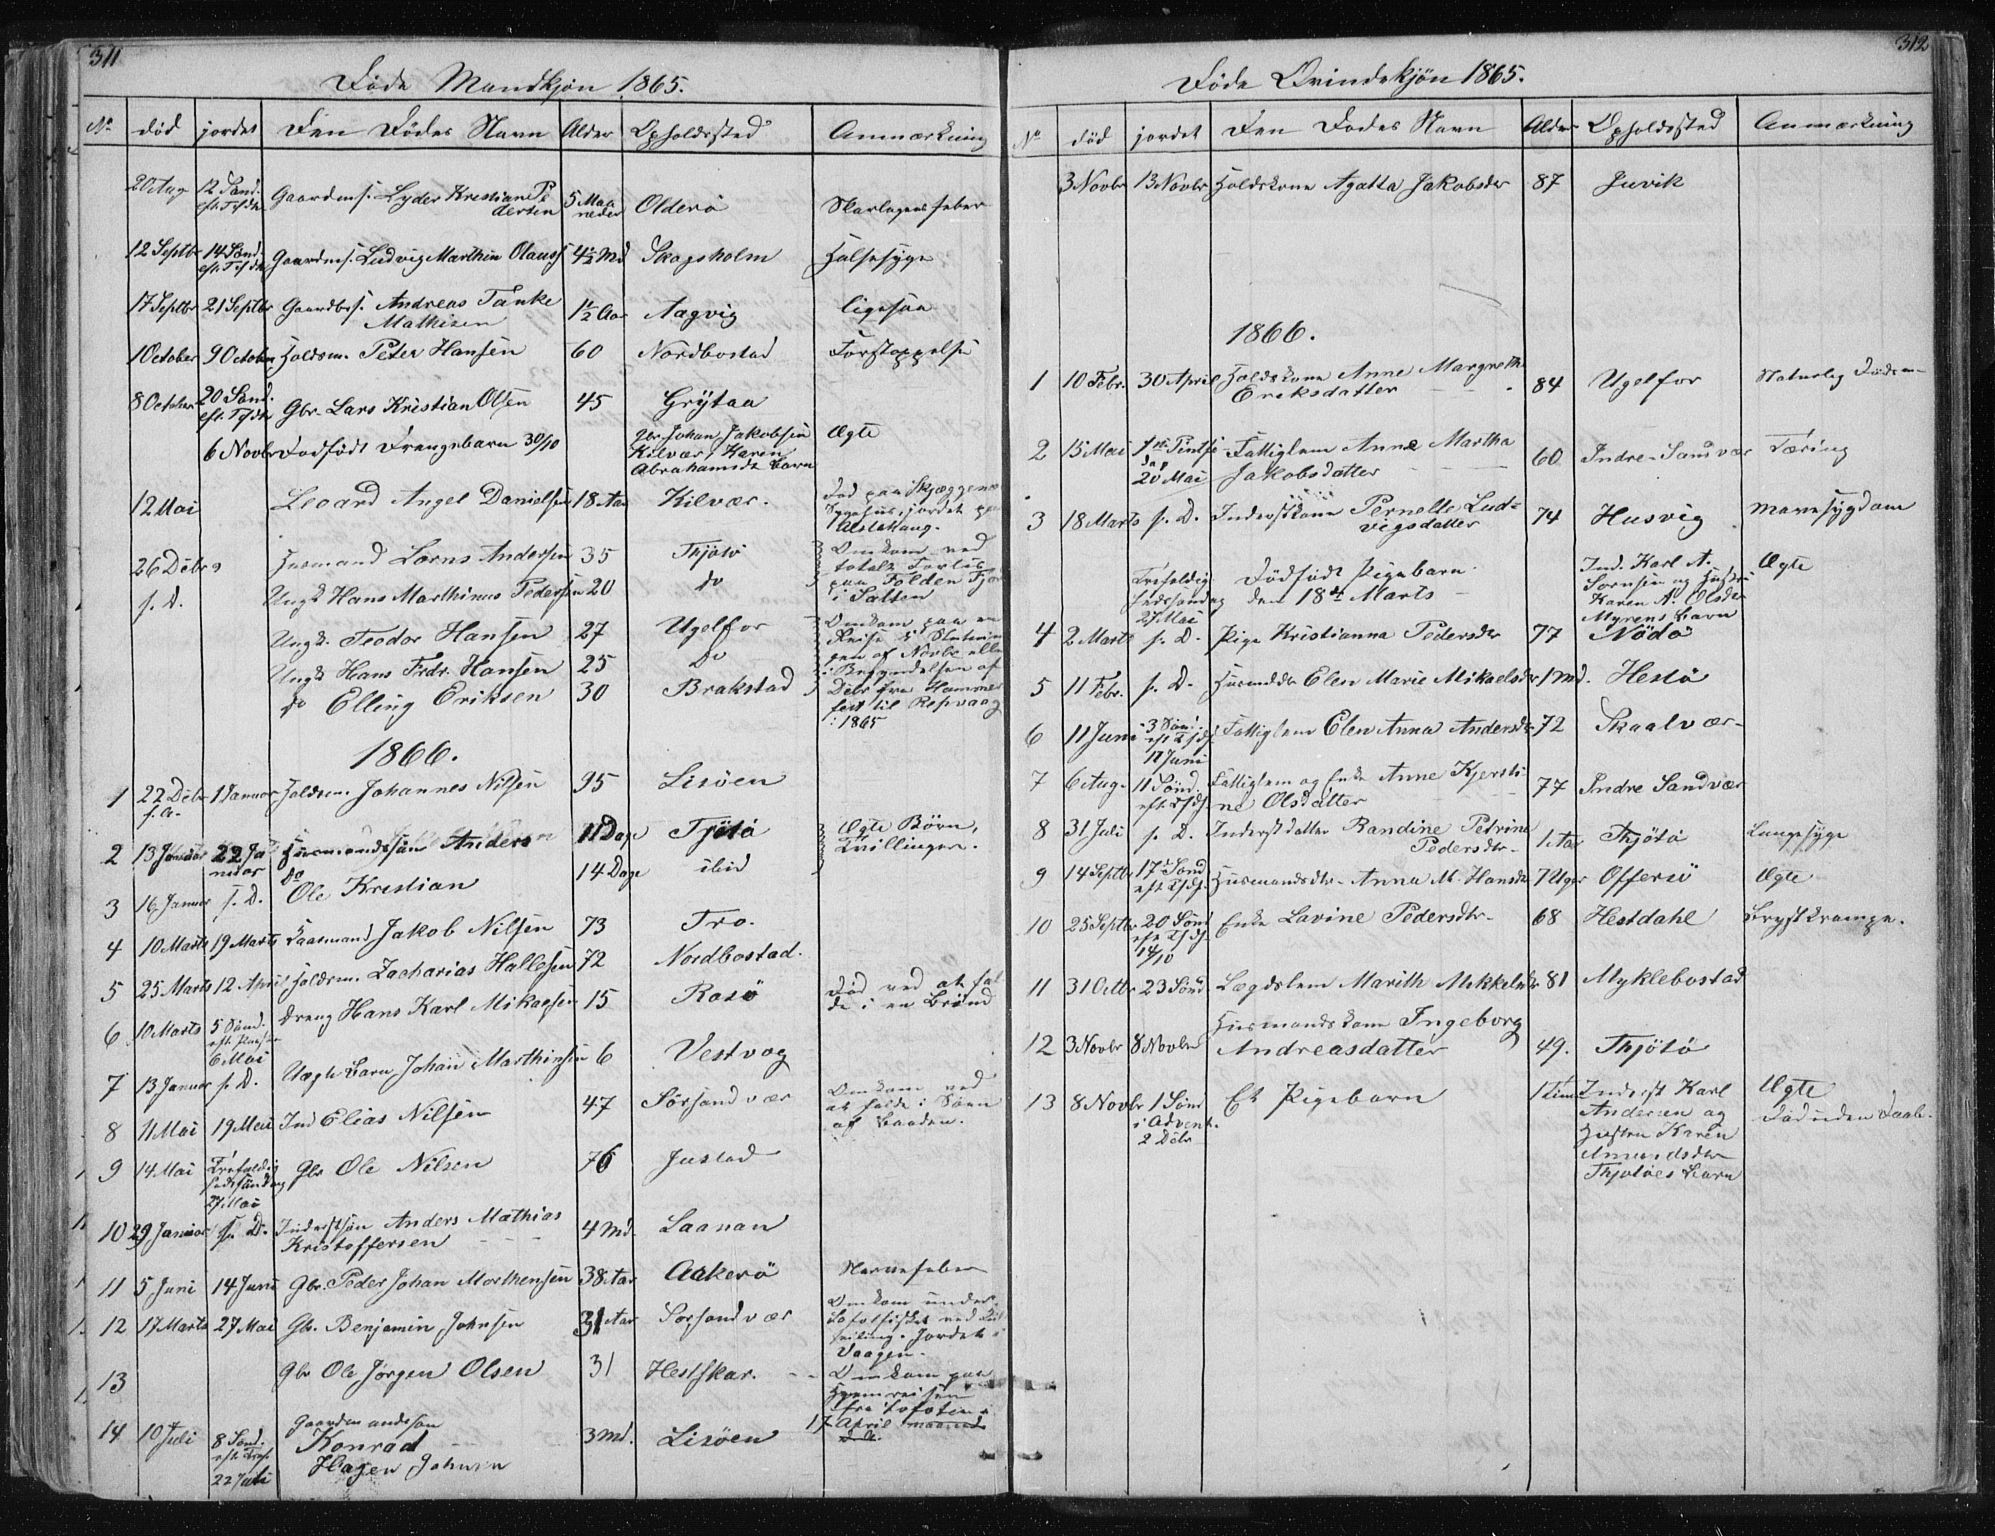 311
Døde Mandkjøn 1865.
No død jordet Den Dødes Navn Alder Opholdssted Anmærkning
20 Aug 12 Sønd. eft. Trfdh Gaardms. Lyder Kristian Pedersen 5 Maaneder Olderö Skarlagensfeber
12 Septbr 14 Sønd. eft. Trfdh Gaardms. Ludvig Marthin Olauss 4½ Md Skogsholm Halsesyge
17 Septbr 21 Septbr Gaardbrs. Andreas Tanke Mathisen 1½ Aar Aagvig ligesaa
1 October 9 October Holdsm. Peter Hansen 60 Nordbostad Forstoppelse
8 October 20 Sønd. eft. Trfdh Gbr. Lars Kristian Olsen 45 Grÿtaa
6 Novbr Dødfödt Drengebarn 30/10 Gbr. Johan Jakobsen Kilvær, Karen Abrahamsdr Barn Ægte
12 Mai Leoard Angel Danielsen 18 Aar Kilvær. Død paa Skjeggenæs Sygehus, jordet paa Alstahaug.
26 Debr Husmand Lorns Andersen 35 Thjötö Omkom ved totalt Forlis paa Folden Fjor i Salten
s. D. Ungk Hans Marthinus Pedersen 20 do
Ungk. Teodor Hansen 27 Ugelfor Omkom paa en Reise i Slutningen af Novbr eller i Begyndelsen af Debr fra Hammerfest til Repvaag i 1865
Ungk Hans Fredr. Hansen 25 do
do Elling Eriksen 30 Brakstad
1866.
1 22 Debr f. A. 1 Januar Holdsm. Johannes Nilsen 95 Lisöen
2 13 Januar 22 Januar Husmandssøn Anders 11 Dage Tjötö Ægte Børn, Tvillinger.
3 16 Januar s. D. Do Ole Kristian 14 Dage ibid
4 10 Marts 19 Marts Kaarmand Jakob Nilsen 73 Tro.
5 25 Marts 12 April Holdsm. Zacharias Hallesen 72 Nordbostad.
6 10 Marts 5 Sønd. eft. Paaske 6 Mai Dreng Hans Karl Mikaelsen 15 Rosö Død ved at falde i en Brønd
7 13 Januar s. D. Uægte Barn Johan Marthinsen 6 Vestvog
8 11 Mai 19 Mai Ind Elias Nilsen 47 Sörsandvær Omkom ved at falde i Søen af Baaden.
9 14 Mai Trefoldighedssøndag 27 Mai Gbr Ole Nilsen 76 Justad
10 29 Januar s. D. Inderstsøn Anders Mathias Kristoffersen 4 Md. Laanan
11 5 Juni 14 Juni Gbr. Peder Johan Morthensen 38 Aar Aakerö Nervefeber
12 17 Marts 27 Mai Gbr. Benjamin Johnsen 31 Aar Sörsandvær Omkom under Lofotfisket ved Kuldseiling. Jordet i Vaagen.
13 Gbr Ole Jørgen Olsen 31 Hestskar. Omkom paa Hjemreisen fra Lofoten i
14 10 Juli 8 Sønd. eft. Tref. 22 Juli Gaardmandssøn Konrad Hagen Johnsen 3 Md. Lisöen 17 April
312
Døde Qvindekjön 1865.
No død jordet Den Dødes Navn Alder Opholdssted Anmærkning
3 Novbr 13 Novbr Holdskone Agatta Jakobsdr 87 Juvik
1866.
1 10 Febr. 30 April Holdskone Anne Margrethe Eriksdatter 84 Ugelfor Naturlig Døds
2 15 Mai 1ste Pintsedag 20 Mai Fattiglem Anne Martha Jakobsdatter 60 Indre-Sandvær Tæring
3 18 Marts s. D. Inderstkone Pernelle Ludvigsdatter 74 Husvig Mavesygdom
Trefoldighedssøndag 27 Mai Dödfödt Pigebarn den 18de Marts Ind. Karl A. Sørnsen og Hustru Karen A. Olsdr Myrens Barn Ægte
4 2 Marts s. D. Pige Kristianna Pedersdr 77 Nödö
5 11 Febr. s. D. Husmdr Elen Marie Mikaelsdr 1 Md. Hestö
6 11 Juni 3 Sönd. eft Trfdh 17 Juni Fattiglem Elen Anna Andersdr 72 Skaalvær
7 6 Aug. 11 Sönd. eft Trfdh Fattiglem og Enke Anne Kjerstine Olsdatter 77 Indre Sandvær
8 31 Juli s. D. Inderstdatter Randine Petrine Pedersdtr 1 Aar Thjötö Lungesyge
9 14 Septbr 17de Sönd eft Trfdh Husmandsdtr Anna M. Hansdr 7 Uger Offersö Ægte
10 25 Septbr 20 Sönd eft Trfdh 14/10 Enke Lavine Pedersdtr 68 Hestdahl Brystkrampe.
11 31 Octbr 23 Sönd Lægdslem Marith Mikkelsdr 81 Myklebostad
12 3 Novbr 8 Novbr Husmandskone Ingeborg Andreasdatter 49. Thjötö
13 8 Novbr 1 Sønd i Advent. 2 Debr Et Pigebarn 1 Time Inderst Karl Andersen og Hustru Karen Amundsdtr Thjötöes Barn Ægte Død uden Daab.